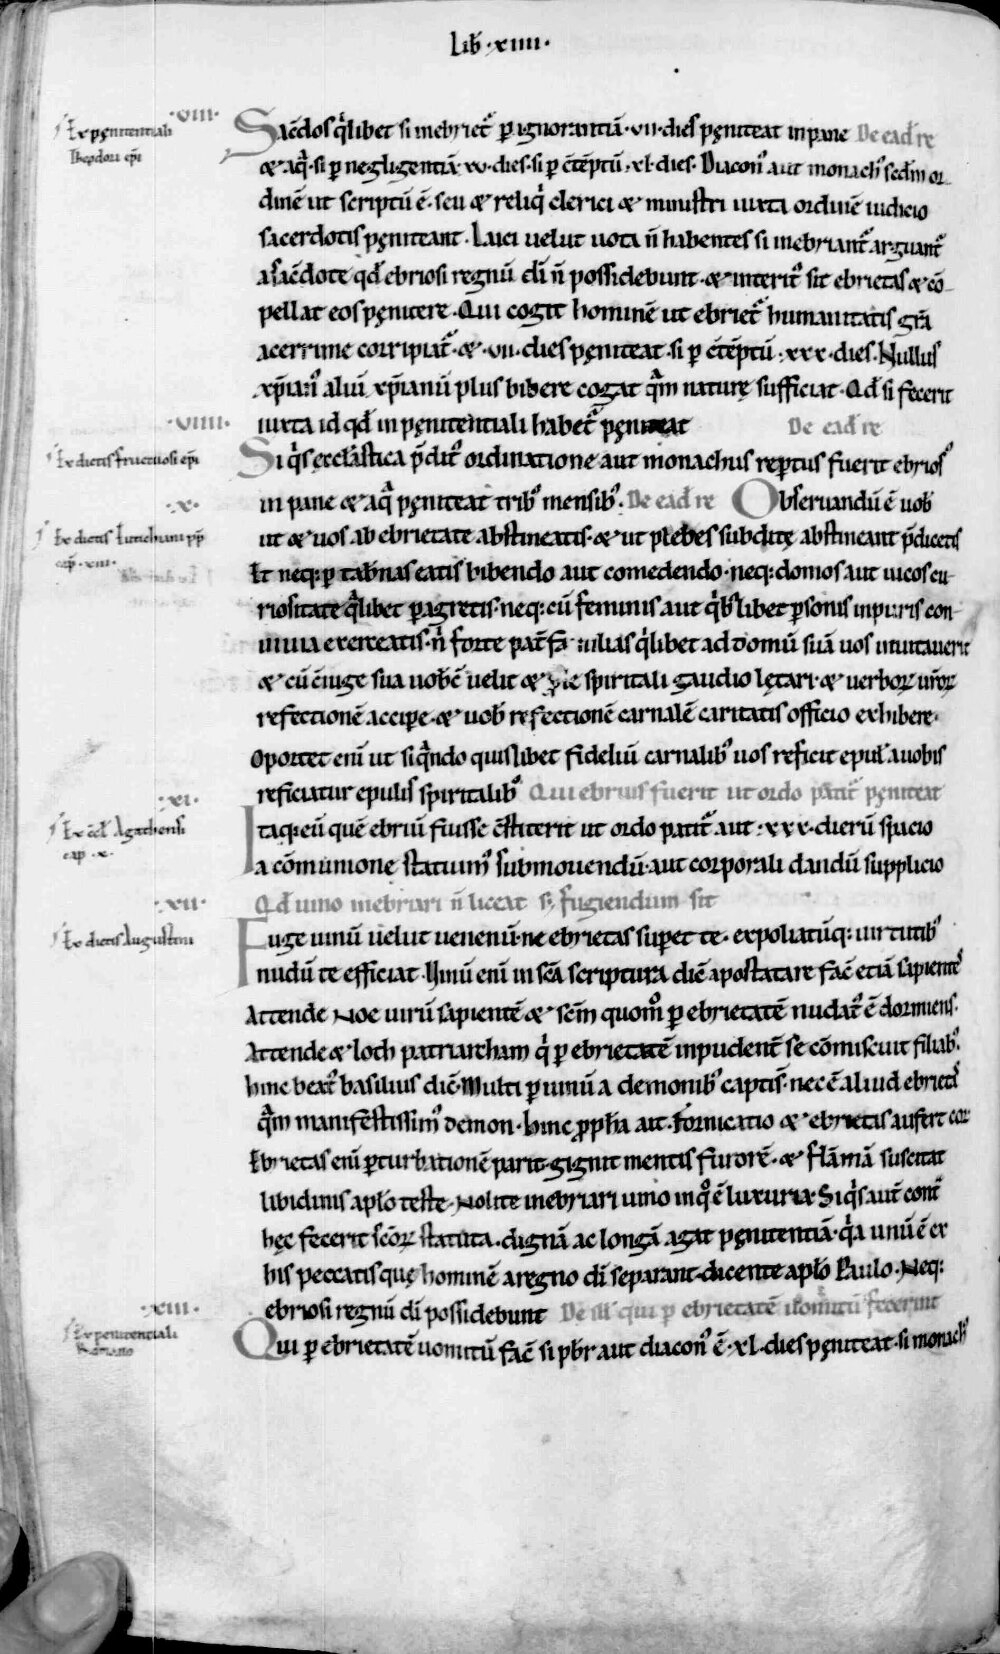 Lib̄ · xiiii ·
· viii ·
Ex pęnitentiali
Theodori ep̄i
Sac̄dos q̾libet si inebriet᷑ ꝑ ignorantiā · vii · dies pęniteat in pane De ead̄ re
& aq̄ · si ꝑ negligentiā xv · dies · si ꝑ c̄tēptū · xl · dies · Diacon᷒ aut monach᷒ sed̄m or-
dinē ut scriptū ē · seu & reliq̾ clerici & ministri iuxta ordinē iudicio
sacerdotis pęniteant · Laici uelut uota n̄ habentes si inebriant᷑ arguant᷑
a sac̄dote qd̄ ebriosi regnū dī n̄ possidebunt · & interit᷒ sit ebrietas & cō-
pellat eos pęnitere · Qui cogit hominē ut ebriet᷑ humanitatis gr̄a
acerrime corripiat᷑ · & · vii · dies pęniteat · si ꝑ c̄tēptū · xxx · dies · Nullus
xp̄ian᷒ aliū xp̄ianū plus bibere cogat q̄m naturę sufficiat · Qd̄ si fecerit
iuxta id qd̄ in pęnitentiali habet᷑ pęniteat De ead̄ re
· viiii ·
Ex dictis fructuosi ep̄i
Si q̾s ęcclāstica p̄dit᷒ ordinatione aut monachus reꝑtus fuerit ebrios᷒
in pane & aq̄ pęniteat trib᷒ mensib᷒ · De ead̄ re Obseruandū ē uob̄
· x ·
Ex dictis Euticiani pp̄
cap̄ · xiii ·
ut & uos ab ebrietate abstineatis · & ut plebes subditę abstineant p̄dicetis
Et neq: ꝑ tab̄nas eatis bibendo aut comedendo · neq: domos aut uicos cu-
riositate q̾libet ꝑagretis · neq: cū feminis aut q̾b᷒libet ꝑsonis inpuris con-
uiuia exerceatis · n̾ forte pat̄ fa milias q̾libet ad domū suā uos inuitauerit
& cū c̄iuge sua uob̄c̄ uelit & spiritali gaudio lętari · & uerboꝝ ur̄oꝝ
refectionē acciꝑe · & uob̄ refectionē carnalē caritatis officio exhibere ·
Oportet eni ut si q̄ndo quislibet fideliū carnalib᷒ uos reficit epul̄ a uobis
reficiatur epulis spiritalib᷒ Qui ebrius fuerit ut ordo patit᷑ pęniteat
· xi ·
Ex c̄cl̄ Agathensi
cap · x ·
Itaq: eū quē ebriū fuisse c̄stiterit ut ordo patit᷑ aut · xxx · dierū spacio
a cōmunione statuim᷒ submouendū · aut corporali dandū supplicio
· xii · Qd̄ uino inebriari n̄ liceat sꝫ fugiendum sit
Ex dictis Augustini
Fuge uinū uelut uenenū · ne ebrietas suꝑet te · expoliatūq: uirtutib᷒
nudū te efficiat · Uinū eni in sc̄a scriptura dic̄ apostatare fac̄ etiā sapientes
Attende Noe uirū sapientē & sc̄m quom̊ ꝑ ebrietatē nudat᷒ ē dormiens ·
Attende & Loth patriarcham q̾ ꝑ ebrietatē inpudent̄ se cōmiscuit filiab᷒ ·
hinc beat᷒ basilius dic̄ · Multi ꝑ uinū a demonib᷒ capti s̄ · nec ē aliud ebrietas
q̄m manifestissim᷒ demon · hinc ꝓph̄a ait · Fornicatio & ebrietas aufert cor
Ebrietas eni ꝑturbationē parit · gignit mentis furorē · & flāmā suscitat
libidinis aplo teste · Nolite inebriari uino in q̊ ē luxuria · Si q̾s aut̄ cont̄
hęc fecerit sc̄oꝝ statuta · dignā ac longā agat pęnitentiā · q̾a unū ē ex
his peccatis quę hominē a regno dī separant · dicente aplo Paulo · Neq:
ebriosi regnū dī possidebunt De ill̄ qui ꝑ ebrietatē uomitū fecerint
· xiii ·
Ex penitentiali
Romano
Qui ꝑ ebrietatē uomitū fac̄ si pb̄r aut diacon᷒ ē · xl · dies pęniteat · si monach᷒